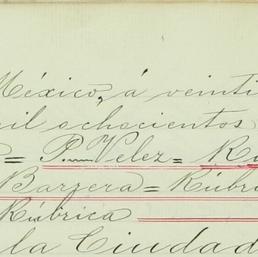 México, á veinti
mil ochocientos
= P. Velez = Rú
Barrera = Rúbri
Rúbrica
la Ciudad